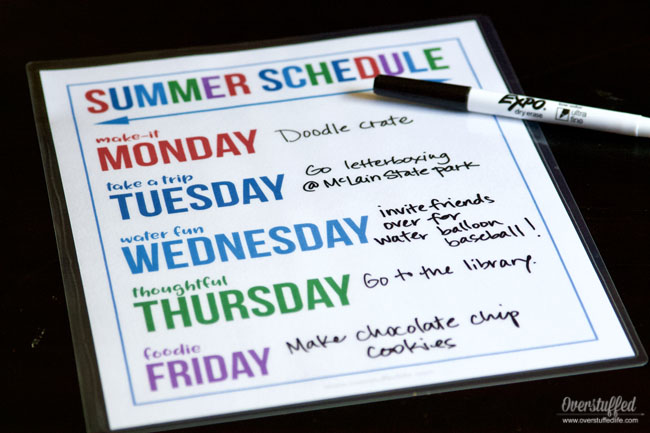 SUMMER SCHEDULE
make-it
MONDAY
Doodle crate
take a trip
TUESDAY
Go letterboxing
@ McLain State park
water fun
WEDNESDAY
invite friends
over for
water balloon
baseball!
thoughtful
THURSDAY
Go to the library.
foodie
FRIDAY
Make chocolate chip
cookies
EXPO
dry erase
ultra
fine
Overstuffed
www.overstuffedlife.com